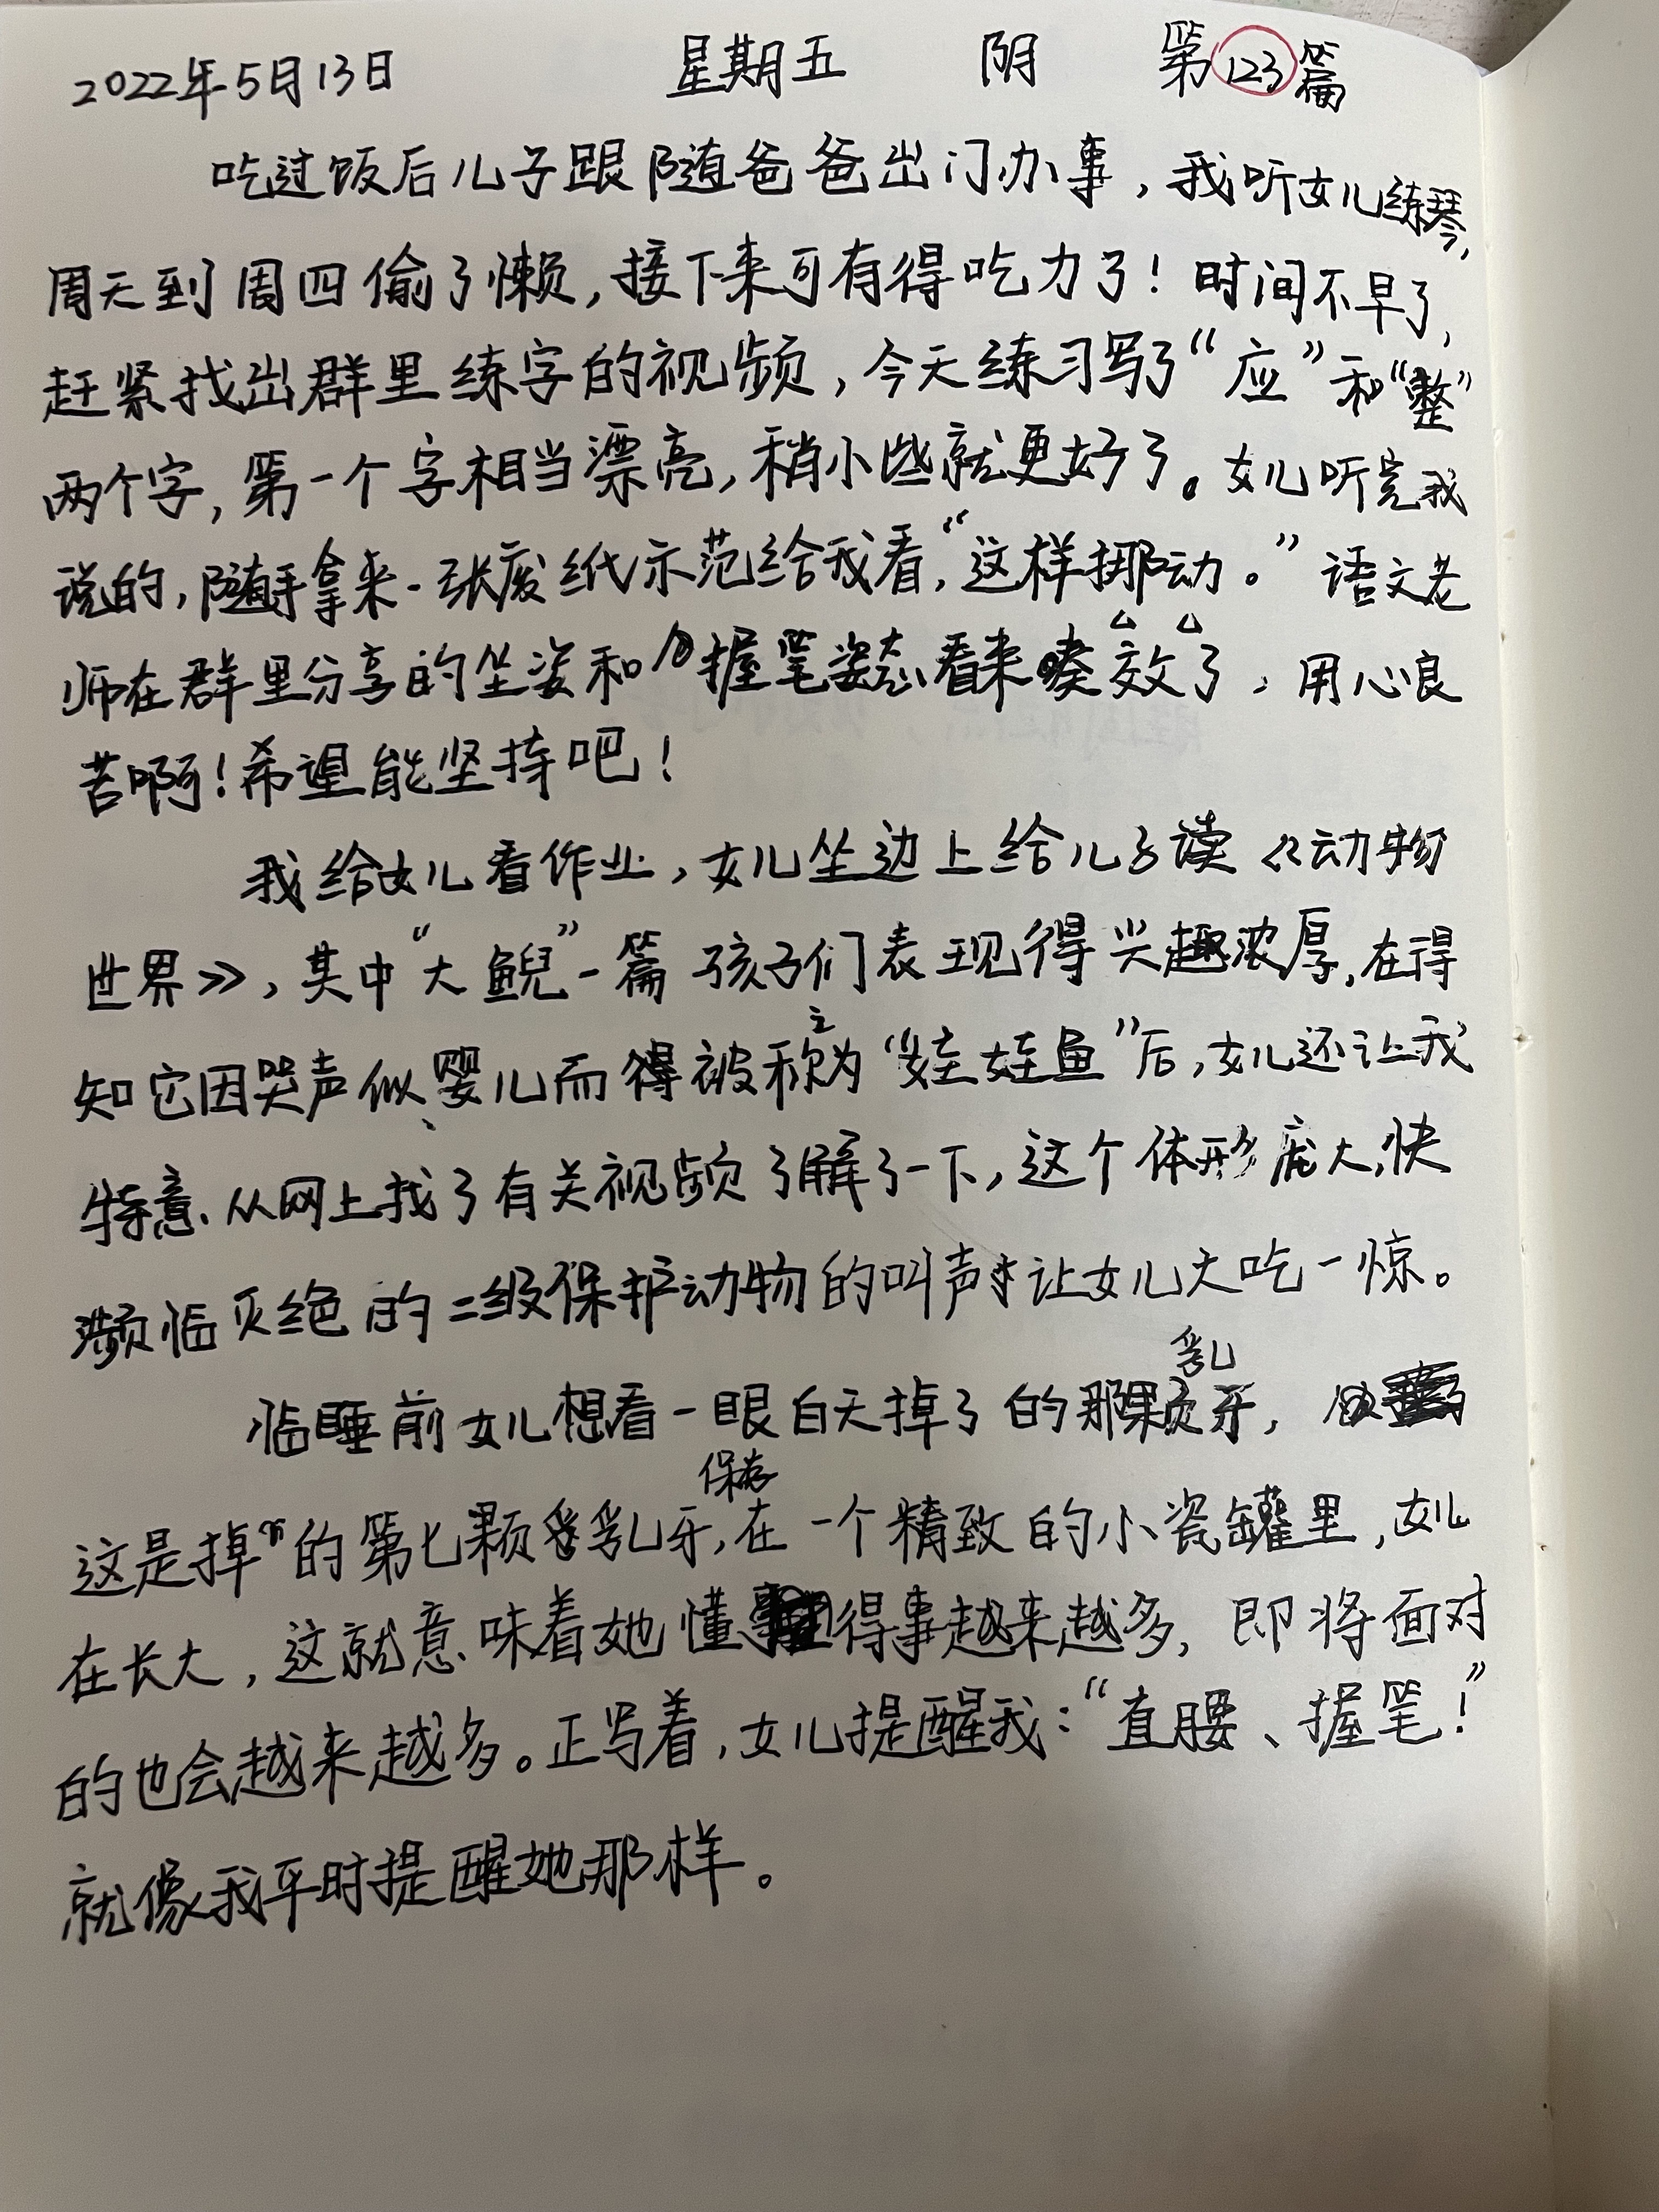 2022年5月13日 星期五 阴 第123篇
吃过饭后儿子跟随爸爸出门办事，我听女儿练琴，
周天到周四偷了懒，接下来可有得吃力了！时间不早了，
赶紧找出群里练字的视频，今天练习写了“应”和“整”
两个字，第一个字相当漂亮，稍小些就更好了。女儿听完我
说的，随手拿来一张废纸示范给我看，“这样挪动。”语文老
师在群里分享的坐姿和握笔姿态看来奏效了，用心良
苦啊！希望能坚持吧！
我给女儿看作业，女儿坐边上给儿子读《动物
世界》，其中“大鲵”一篇孩子们表现得兴趣浓厚，在得
知它因哭声似婴儿而得被称之为“娃娃鱼”后，女儿还让我
特意从网上找了有关视频了解了一下，这个体形庞大，快
濒临灭绝的二级保护动物的叫声让女儿大吃一惊。
临睡前女儿想看一眼白天掉了的那颗乳牙，
这是掉的第七颗乳牙，保存在一个精致的小瓷罐里，女儿
在长大，这就意味着她懂得事越来越多，即将面对
的也会越来越多。正写着，女儿提醒我：“直腰、握笔！”
就像我平时提醒她那样。